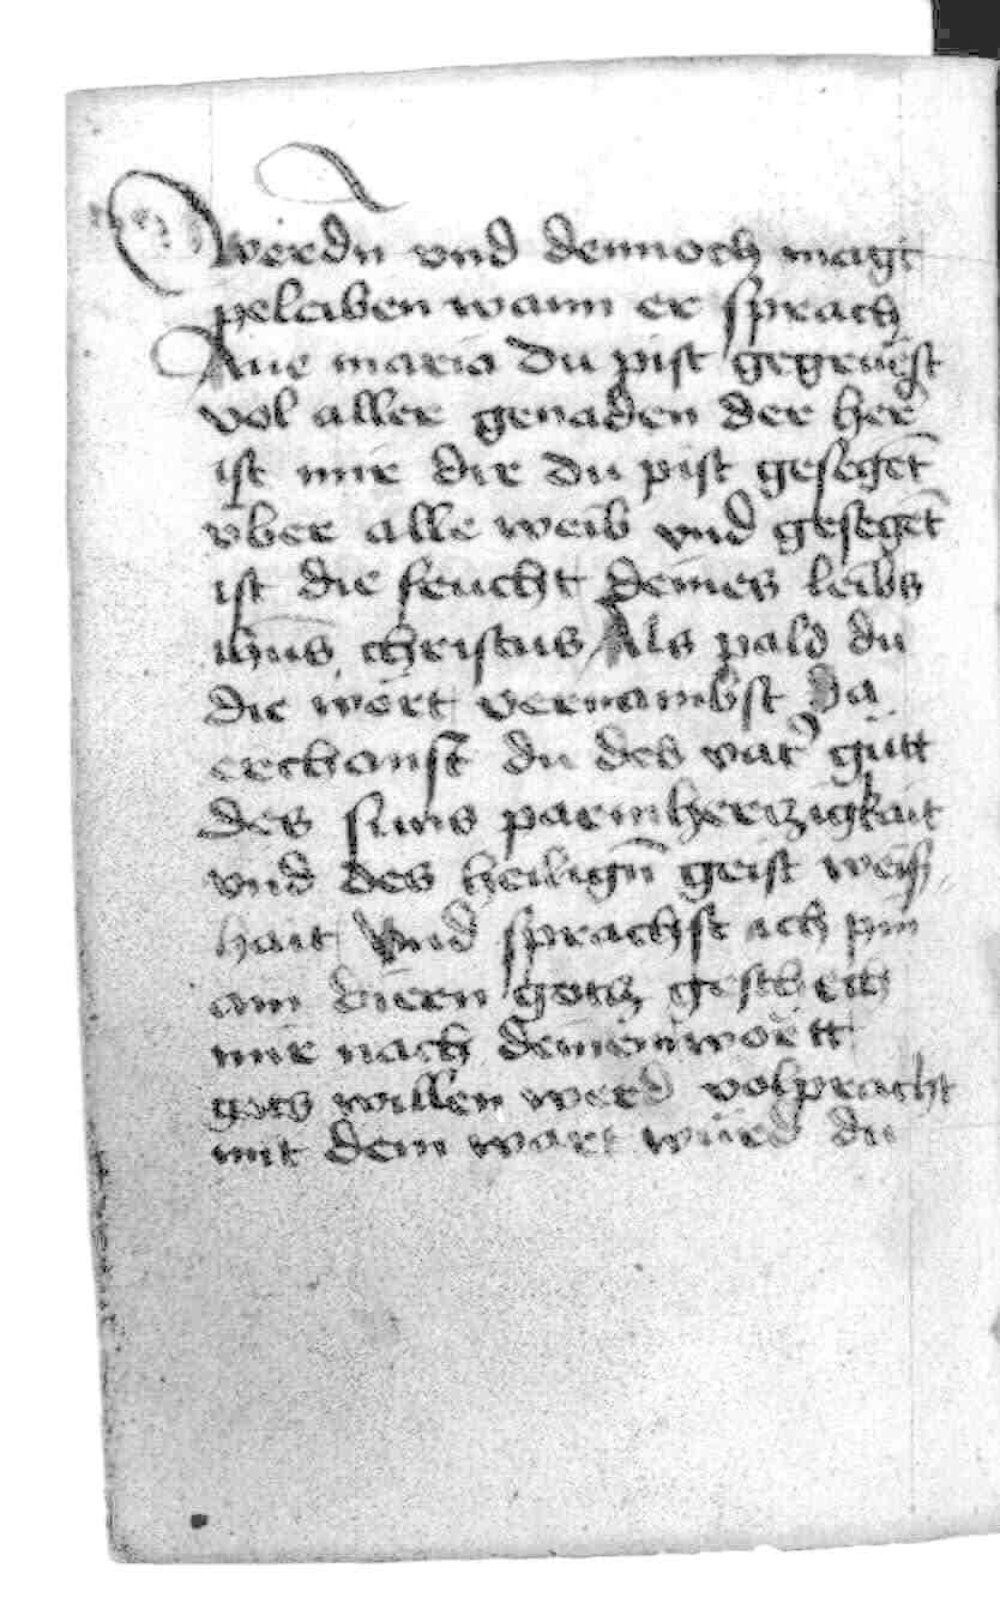 werdn vnd dennoch magt
peleiben wann er sprach
Aue maria du pist gegruest
vol aller genaden der her
ist mir dir du pist gesegēt
vber alle weib vnd gesegēt
ist die frucht deines leibs
ihūs christus Als pald du
die wort vernambst da
erchanst du des vat' gütt
des suns parmherczigkait
vnd des heiligñ geist weis
hait Vnd sprachst ich pin
ain diern gotz geschech
mir nach deinem wortt
gots willen werd volpracht
mit dem wort würd du